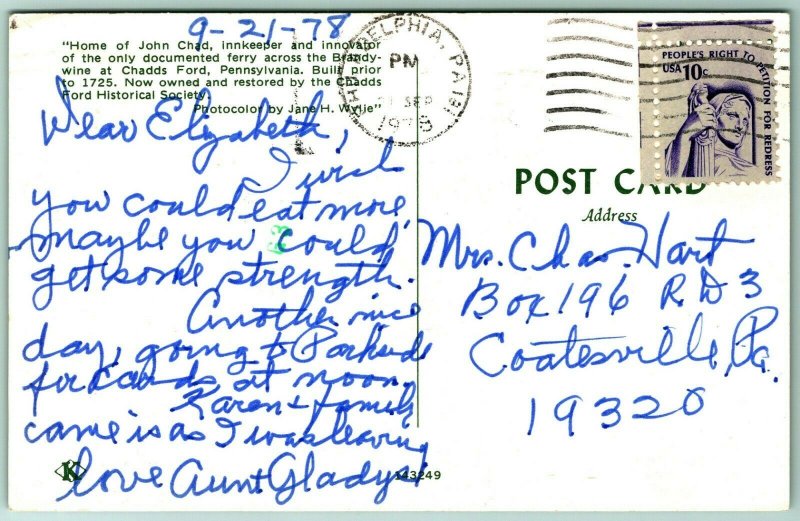 9-21-78
"Home of John Chad, innkeeper and innovator
of the only documented ferry across the Brandy-
wine at Chadds Ford, Pennsylvania. Built prior
to 1725. Now owned and restored by the Chadds
Ford Historical Society.
Photocolor by Jane H. Wylie"
PHILADELPHIA, PA
PM
21 SEP
1978
PEOPLE'S RIGHT TO PETITION FOR REDRESS
USA 10c
Dear Elizabeth,
I wish
you could eat more,
maybe you could
get some strength.
Another nice
day, going to Parkside
for cards at noon,
Karen & family
came is as I was leaving
love Aunt Gladys
POST CARD
Address
Mrs. Chas. Hart
Box 196 R.D 3
Coatesville, Pa.
19320
K
143249